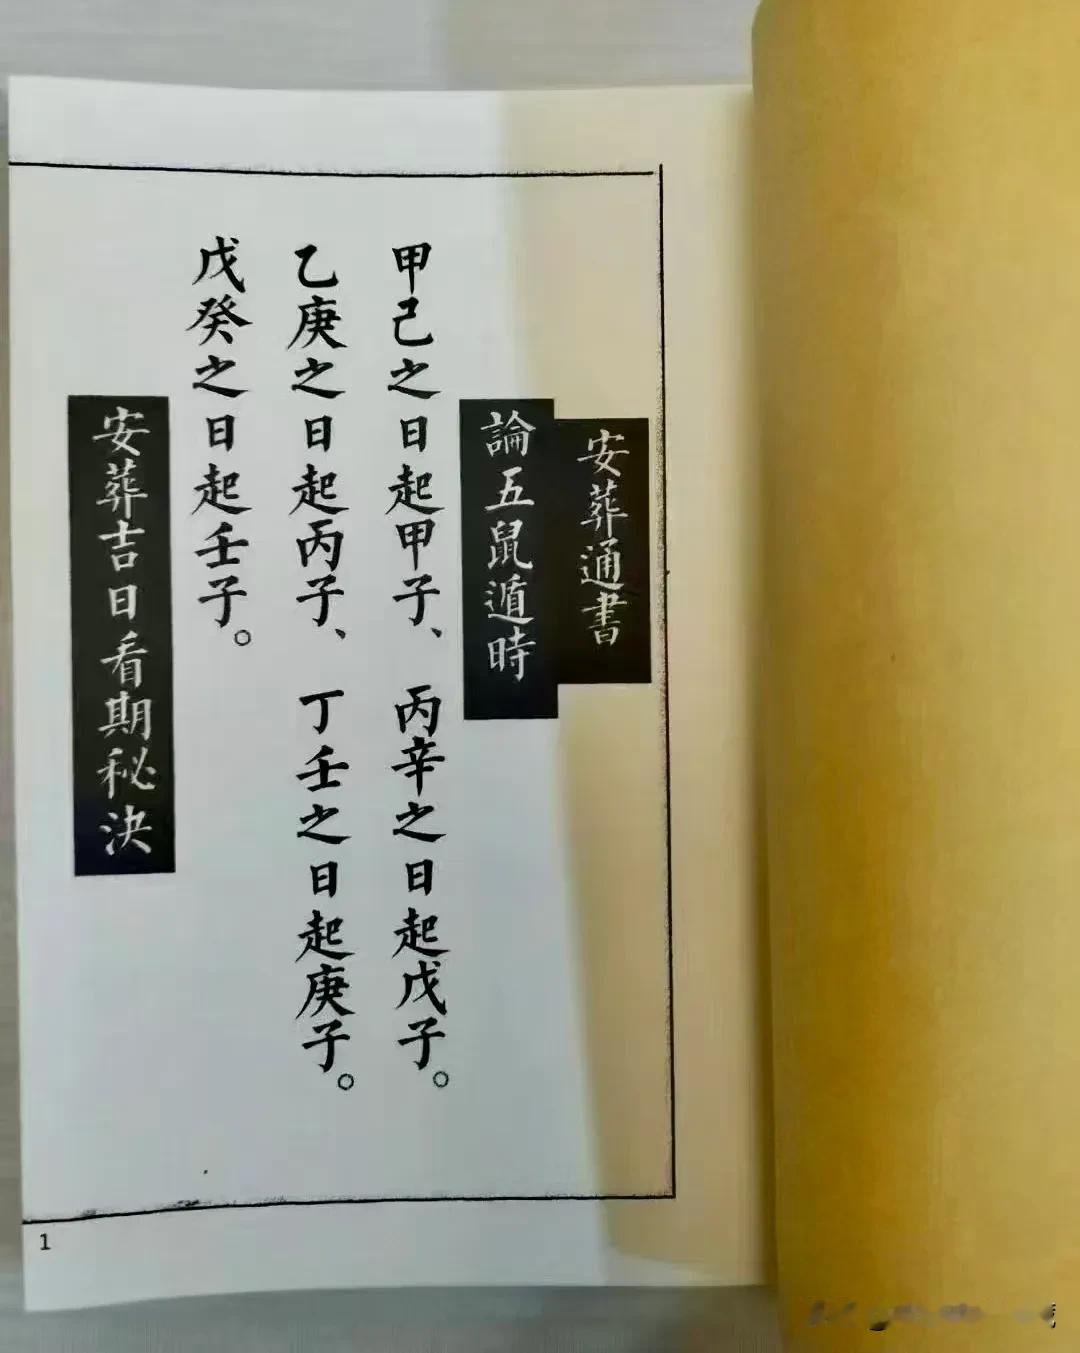 安葬通書
論五鼠遁時
甲己之日起甲子、 丙辛之日起戊子。
乙庚之日起丙子、 丁壬之日起庚子。
戊癸之日起壬子。
安葬吉日看期秘決
1